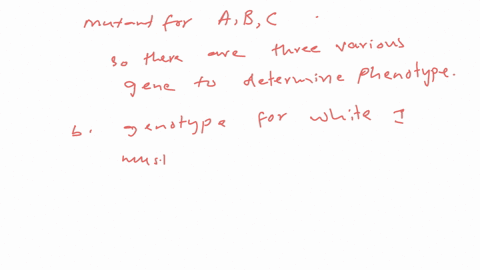 mutant for A, B, C .
so there are three various
gene to determine phenotype.
b. genotype for white I
must